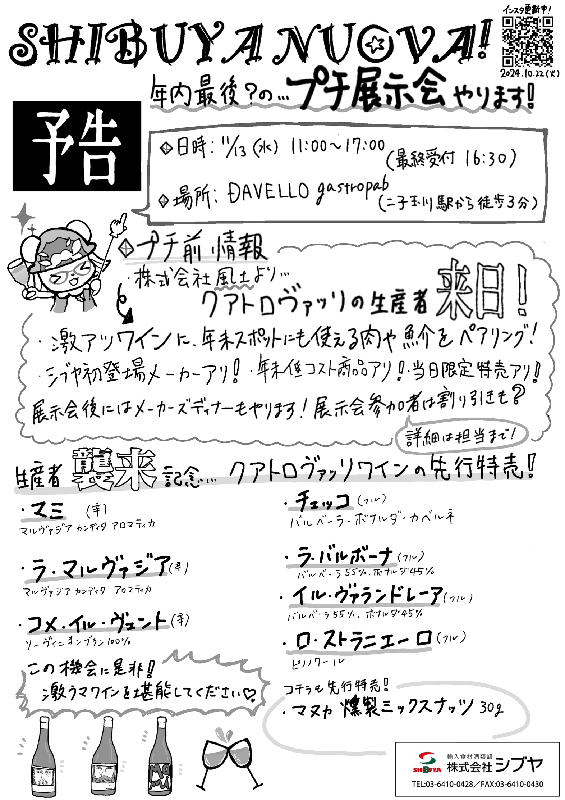 SHIBUYA NUOVA!
インスタ更新中!
2024.10.22(火)
年内最後?の… プチ展示会 やります!
予告
日時: 11/13(水) 11:00〜17:00 (最終受付 16:30)
場所: DAVELLO gastropab (二子玉川駅から徒歩3分)
プチ前情報
・株式会社風土より…
クアトロヴァッリの生産者 来日!
・激アツワインに、年末スポットにも使える肉や魚介をペアリング!
・シブヤ初登場メーカーアリ! ・年末低コスト商品アリ!・当日限定特売アリ!
展示会後にはメーカーズディナーもやります!展示会参加者は割り引きも?
詳細は担当まで!
生産者 襲来 記念… クアトロヴァッリワインの先行特売!
・マミ (辛)
マルヴァジア カンディダ アロマティカ
・ラ・マルヴァジア(辛)
マルヴァジア カンディダ アロマティカ
・コメ・イル・ヴェント(辛)
ソーヴィニオンブラン100%
・チェッコ(フル)
バルベーラ・ボナルダ・カベルネ
・ラ・バルボーナ(フル)
バルベーラ55%、ボナルダ45%
・イル・ヴァランドレーア(フル)
バルベーラ55%、ボナルダ45%
・ロ・ストラニエーロ(フル)
ピノノワール
この機会に是非!
激うまワインを堪能してください♡
コチラも先行特売!
・マヌカ燻製ミックスナッツ 30g
SHIBUYA
輸入食材酒類卸
株式会社シブヤ
TEL:03-6410-0428/FAX:03-6410-0430